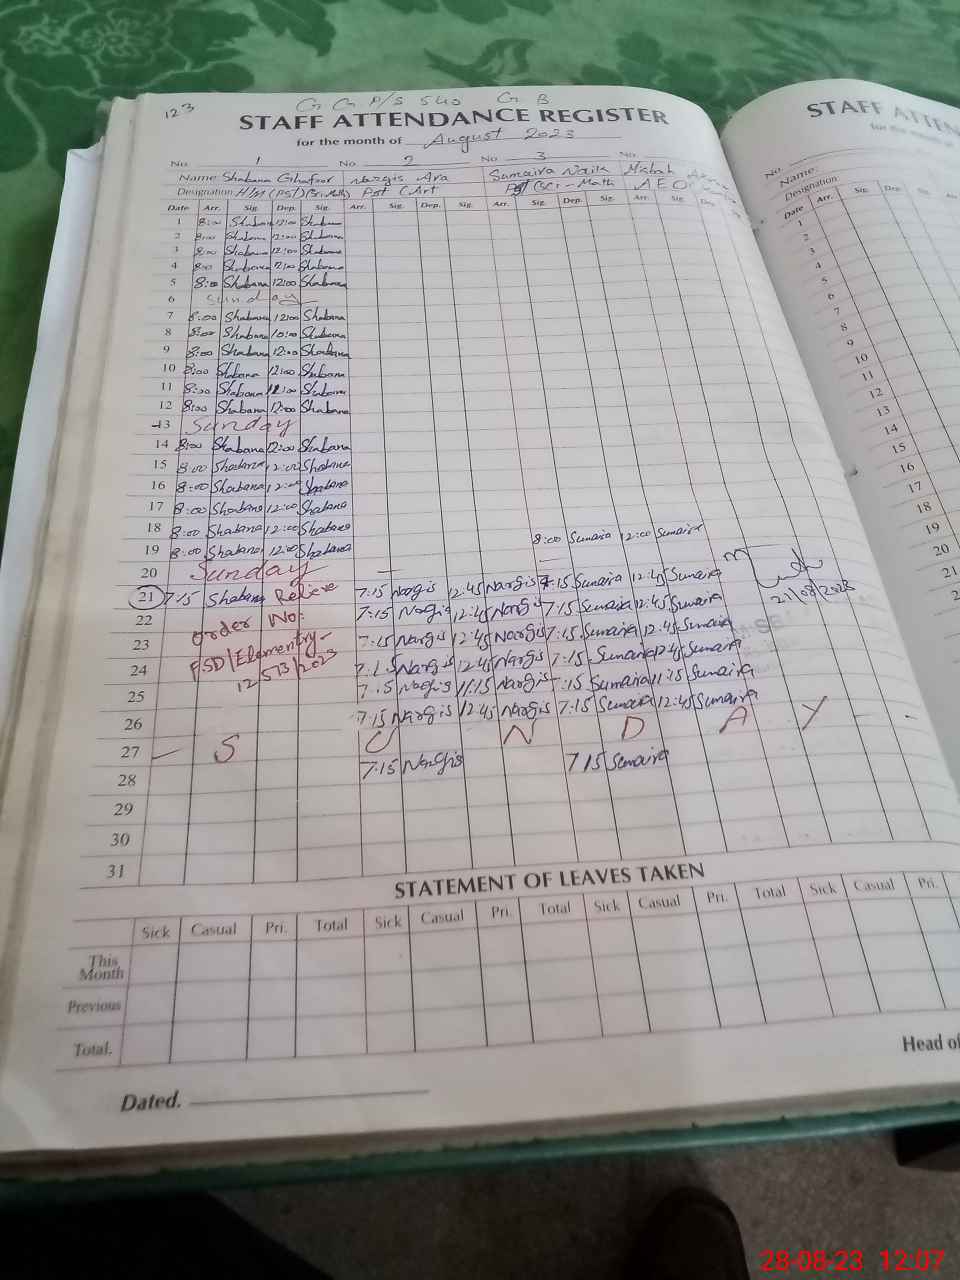 123
G G P/S 540 G B
STAFF ATTENDANCE REGISTER
for the month of August 2023
No. 1 No. 2 No. 3 No.
Name: Shabana Ghafoor Nargis Ara Sumaira Naila Misbah
Designation H/M (PST) Pst (Art Pst (BSc - Math AEO
Date Arr. Sig. Dep. Sig. Arr. Sig. Dep. Sig. Arr. Sig. Dep. Sig. Arr. Sig. Dep.
1 8:00 Shabana 12:00 Shabana
2 8:00 Shabana 12:00 Shabana
3 8:00 Shabana 12:00 Shabana
4 8:00 Shabana 12:00 Shabana
5 8:00 Shabana 12:00 Shabana
6 Sunday
7 8:00 Shabana 12:00 Shabana
8 8:00 Shabana 10:00 Shabana
9 8:00 Shabana 12:00 Shabana
10 8:00 Shabana 12:00 Shabana
11 8:00 Shabana Shabana
12 8:00 Shabana 12:00 Shabana
13 Sunday
14 8:00 Shabana 12:00 Shabana
15 8:00 Shabana 12:00 Shabana
16 8:00 Shabana 12:00 Shabana
17 8:00 Shabana 12:00 Shabana
18 8:00 Shabana 12:00 Shabana
19 8:00 Shabana 12:00 Shabana 8:00 Sumaira 12:00 Sumaira
20 Sunday
21 7:15 Shabana Relieve 7:15 Nargis 12:45 Nargis 7:15 Sumaira 12:45 Sumaira
21/08/2023
22 order No: 7:15 Nargis 12:45 Nargis 7:15 Sumaira 12:45 Sumaira
23 FSD/Elementry- 7:15 Nargis 12:45 Nargis 7:15 Sumaira 12:45 Sumaira
24 12573/2023 7:15 Nargis 12:45 Nargis 7:15 Sumaira 12:45 Sumaira
25 7:15 Nargis 11:15 Nargis 7:15 Sumaira 11:15 Sumaira
26 7:15 Nargis 12:45 Nargis 7:15 Sumaira 12:45 Sumaira
27 — S U N D A Y - -
28 7:15 Nargis 7 15 Sumaira
29
30
31
STATEMENT OF LEAVES TAKEN
Sick Casual Pri. Total Sick Casual Pri. Total Sick Casual Pri. Total Sick Casual Pri.
This Month
Previous
Total.
Head of
Dated.
STAFF ATTEN
for the mon
No.
Name:
Designation
Date Arr. Sig. Dep.
1
2
3
4
5
6
7
8
9
10
11
12
13
14
15
16
17
18
19
20
21
28-08-23 12:07